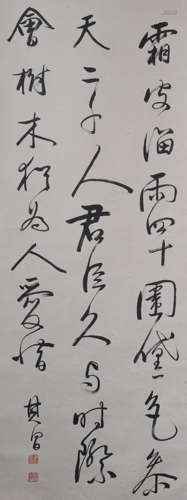 霜皮溜雨四十圍黛色参
天二千尺君臣久与時際
會樹木猶為人愛惜
其昌